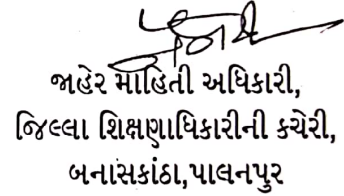 જાહેર માહિતી અધિકારી,
જિલ્લા શિક્ષણાધિકારીની કચેરી,
બનાસકાંઠા,પાલનપુર